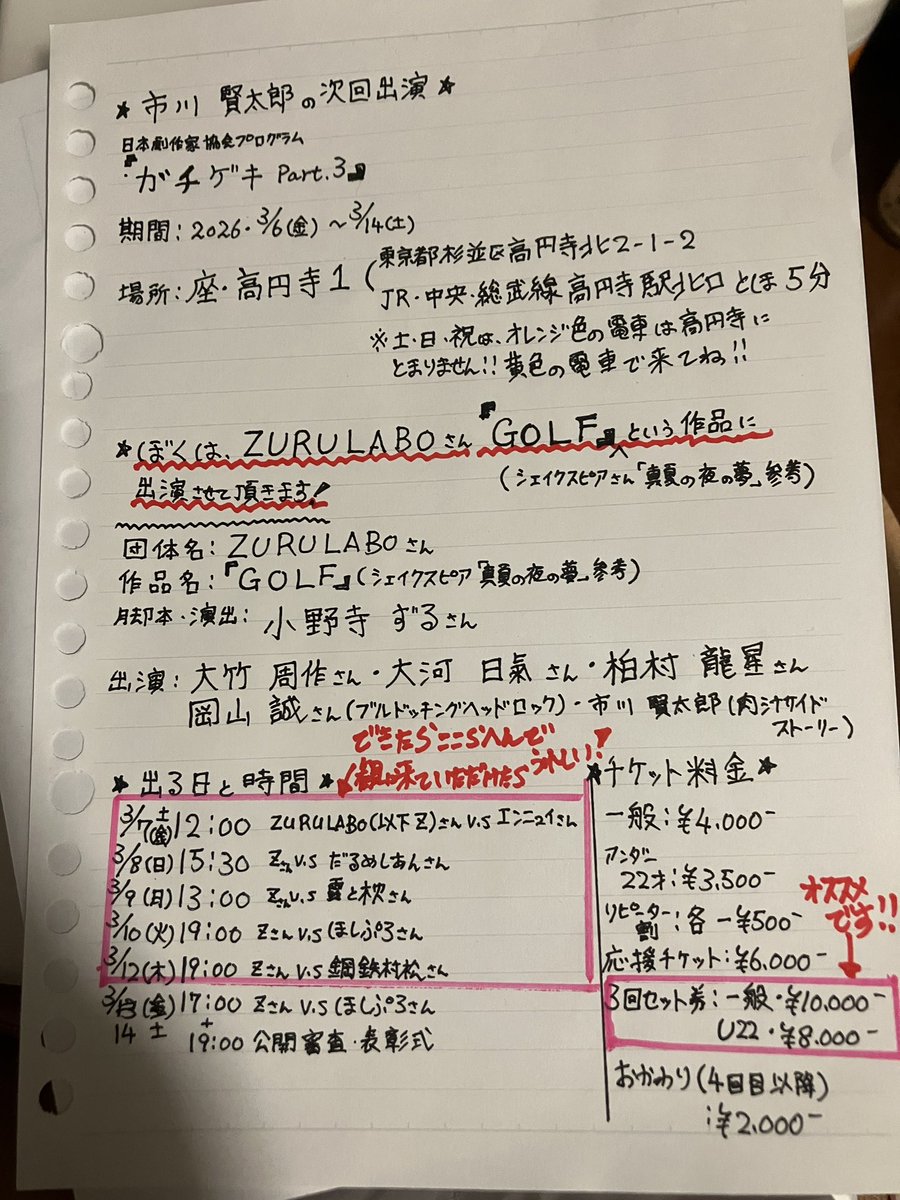 ★ 市川 賢太郎の次回出演 ★
日本劇作家協会プログラム
『ガチゲキ Part.3』
期間：2026・3/6(金)～3/14(土)
場所：座・高円寺1 (東京都杉並区高円寺北2-1-2
JR・中央・総武線 高円寺駅北口 とほ5分
※土・日・祝は、オレンジ色の電車は高円寺に
とまりません!! 黄色の電車で来てね!!
★ぼくは、ZURULABOさん『GOLF』という作品に
(シェイクスピアさん「真夏の夜の夢」参考)
出演させて頂きます！
団体名：ZURULABOさん
作品名：『GOLF』(シェイクスピア「真夏の夜の夢」参考)
脚本・演出：小野寺 ずるさん
出演：大竹 周作さん・大河 日氣さん・柏村 龍星さん
岡山 誠さん(ブルドッキングヘッドロック)・市川 賢太郎(肉汁サイド
ストーリー)
できたらここらへんで
観に来ていただけたらうれしい！
★出る日と時間★
3/7(土) 12:00 ZURULABO(以下Z)さんv.sエンニュイさん
3/8(日) 15:30 Zさんv.s だるめしあんさん
3/9(月) 13:00 Zさんv.s 雲と枕さん
3/10(火) 19:00 Zさんv.sほしぷろさん
3/12(木) 19:00 Zさんv.s 鋼鉄村松さん
3/13(金) 17:00 Zさん v.sほしぷろさん
14 土 +
19:00 公開審査・表彰式
★チケット料金★
一般：¥4.000-
アンダー
22才：¥3.500-
リピーター
割：各-¥500-
応援チケット：¥6.000-
オススメ
です!!
3回セット券：一般・¥10.000-
U22・¥8.000-
おかわり(4回目以降)
：¥2.000-